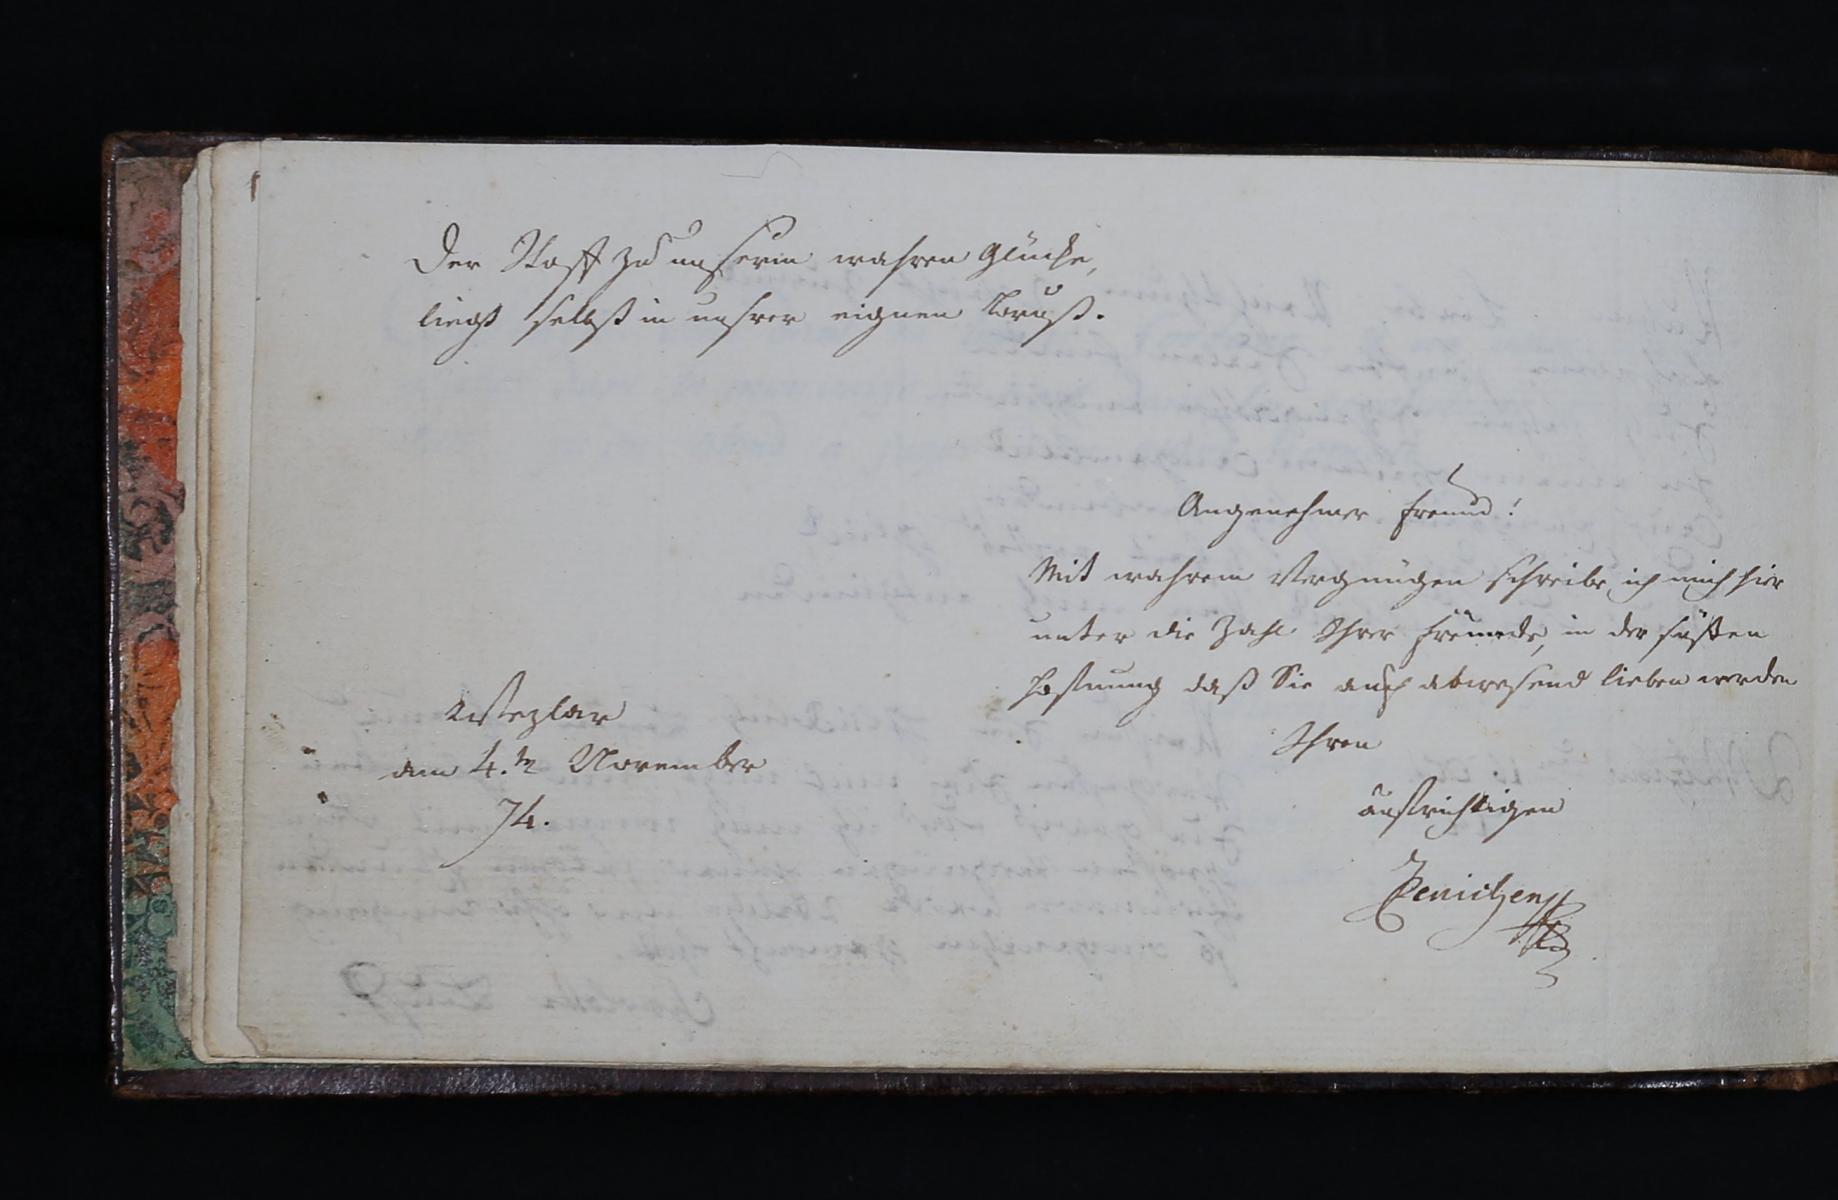 Der Stoff zu unserm wahren Glücke,
liegt selbst in unsrer eignen Brust.
Angenehmer Freund!
Mit wahrem Vergnügen schreibe ich mich hier
unter die Zahl Ihrer Freunde, in der süßten
Hofnung daß Sie auch abwesend lieben werden
Ihren
aufrichtigen
Wezlar
den 4.tn November
74.